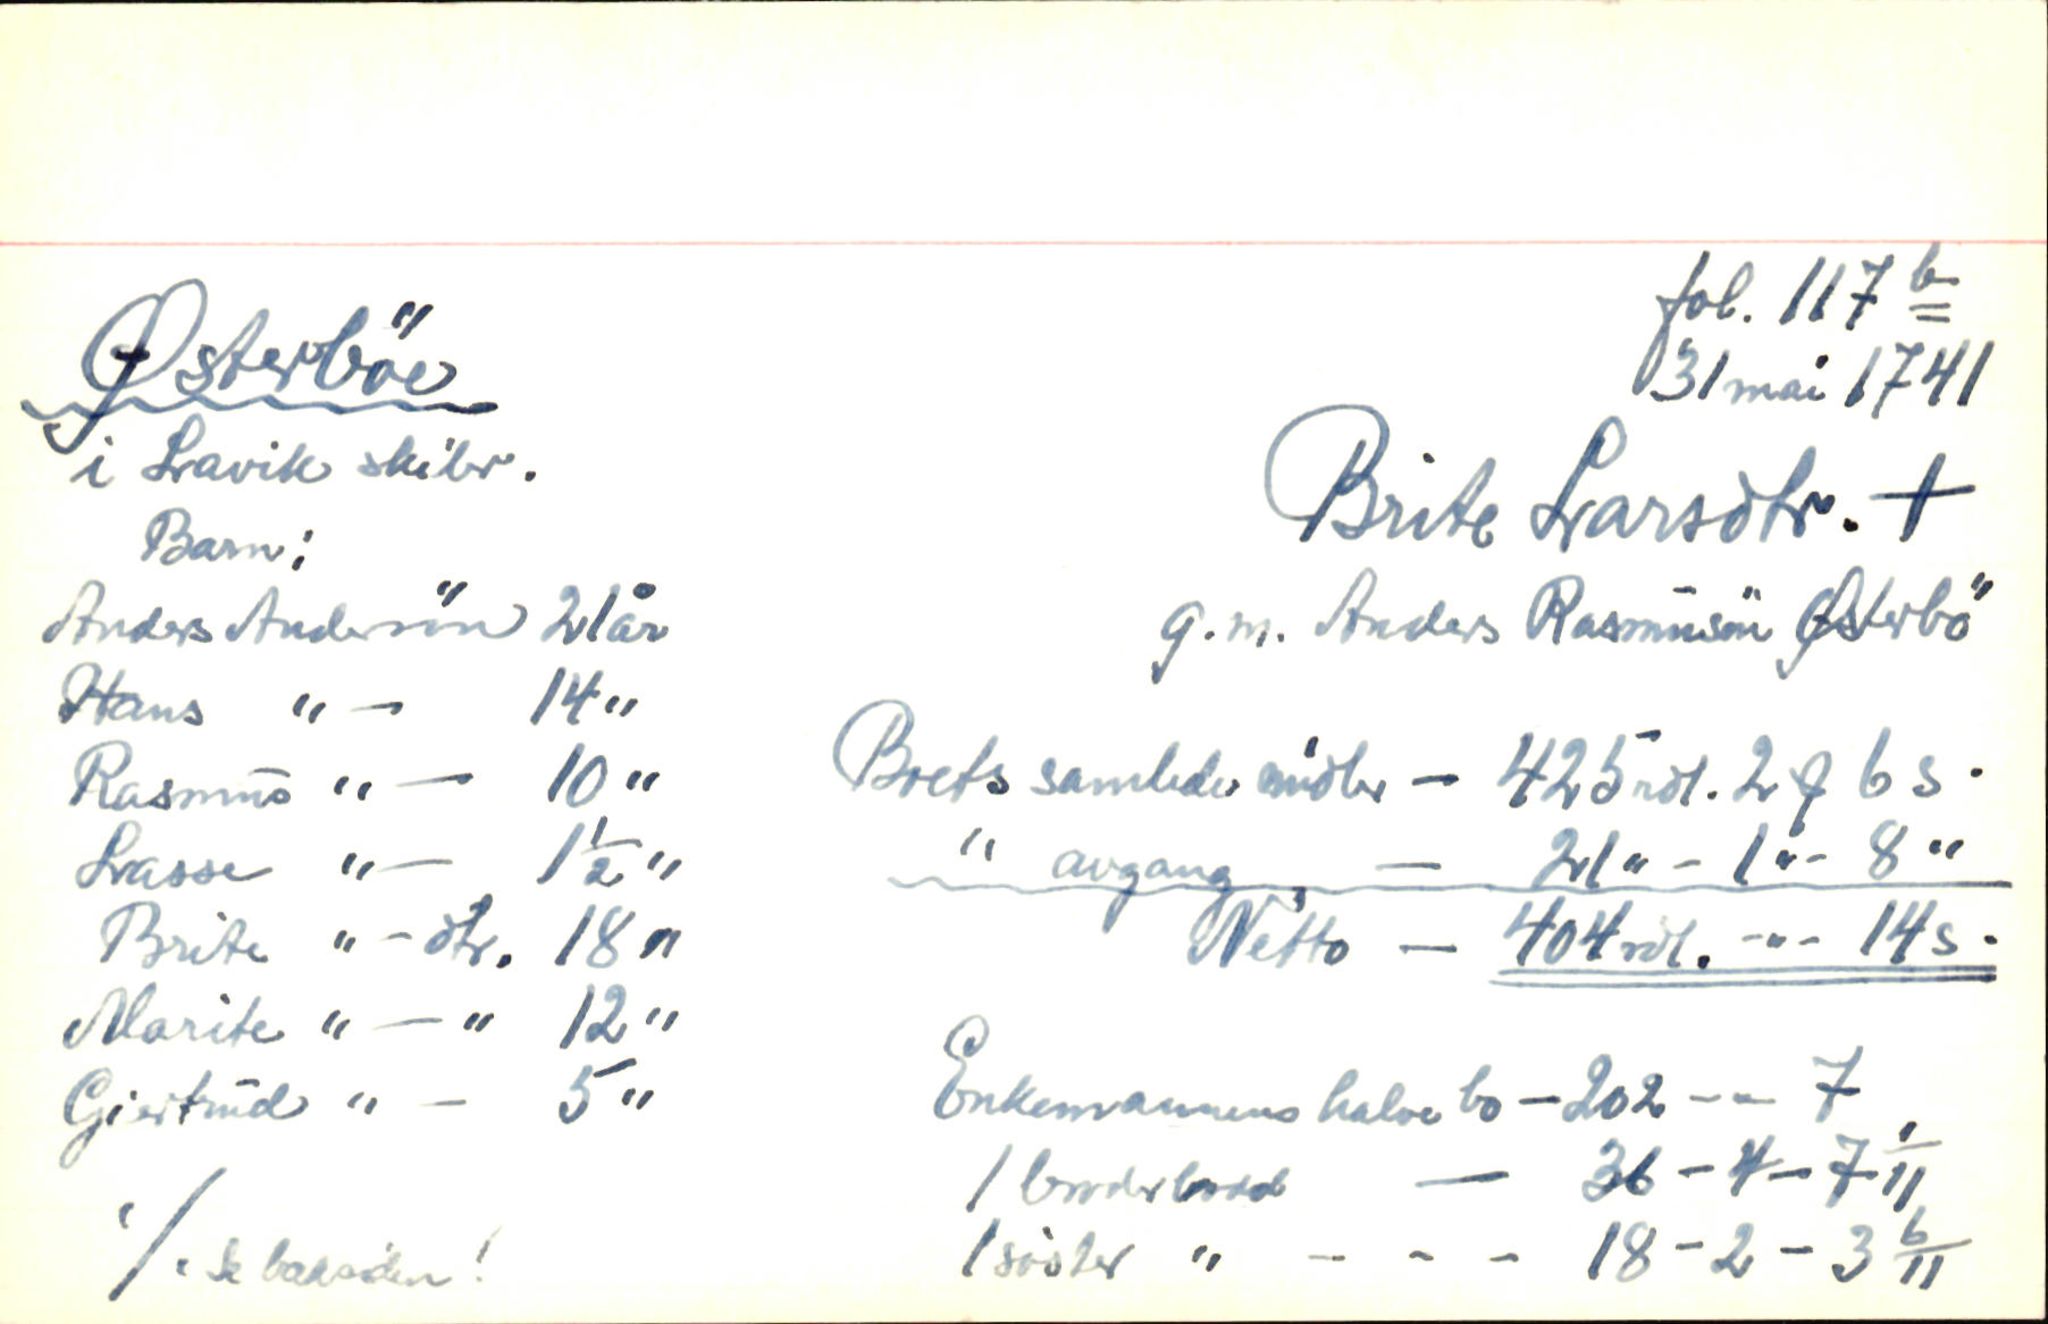 fol. 117 b
31 mai 1741
Østerböe
i Lavik skibr.
Brite Larsdtr. +
g.m. Anders Rasmusön Østerbö
Barn:
Anders Andersön 21 år
Hans " — 14 "
Rasmus " — 10 "
Lasse " — 1 1/2 "
Brite " - dtr. 18 "
Marite " — " 12 "
Giertrud " — 5 "
./. Se baksiden!
Boets samlede midler — 425 rdl. 2 ƒ 6 s.
" avgang — 21 " - 1 " - 8 "
Netto — 404 rdl. -"- 14 s.
Enkemannens halve bo — 202 -- 7
1 broderlodd — 36 - 4 - 7 1/11
1 söster " - - - 18 - 2 - 3 6/11